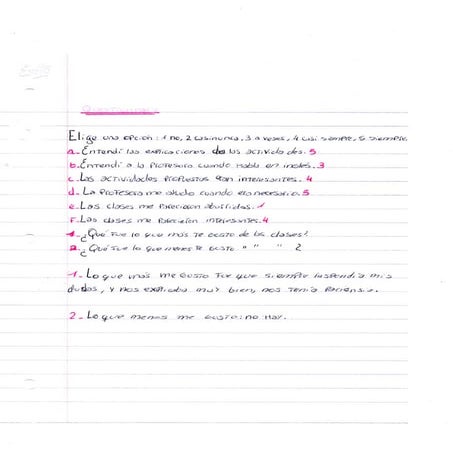 Elige una opción: 1 no, 2 casi nunca, 3 a veces, 4 casi siempre, 5 siempre
a- Entendí las explicaciones de las actividades. 5
b- Entendí a la profesora cuando habló en inglés. 3
c- Las actividades propuestas eran interesantes. 4
d- La profesora me ayudo cuando era necesario. 5
e- Las clases me parecieron aburridas. 1
F- Las clases me parecieron interesantes. 4
1- ¿Qué fue lo que más te gusto de las clases?
2- ¿Qué fue lo que menos te gusto " " " ?
1- Lo que más me gusto fue que siempre respondía mis
dudas, y nos explicaba muy bien, nos tenía paciencia.
2- Lo que menos me gusto: no hay.